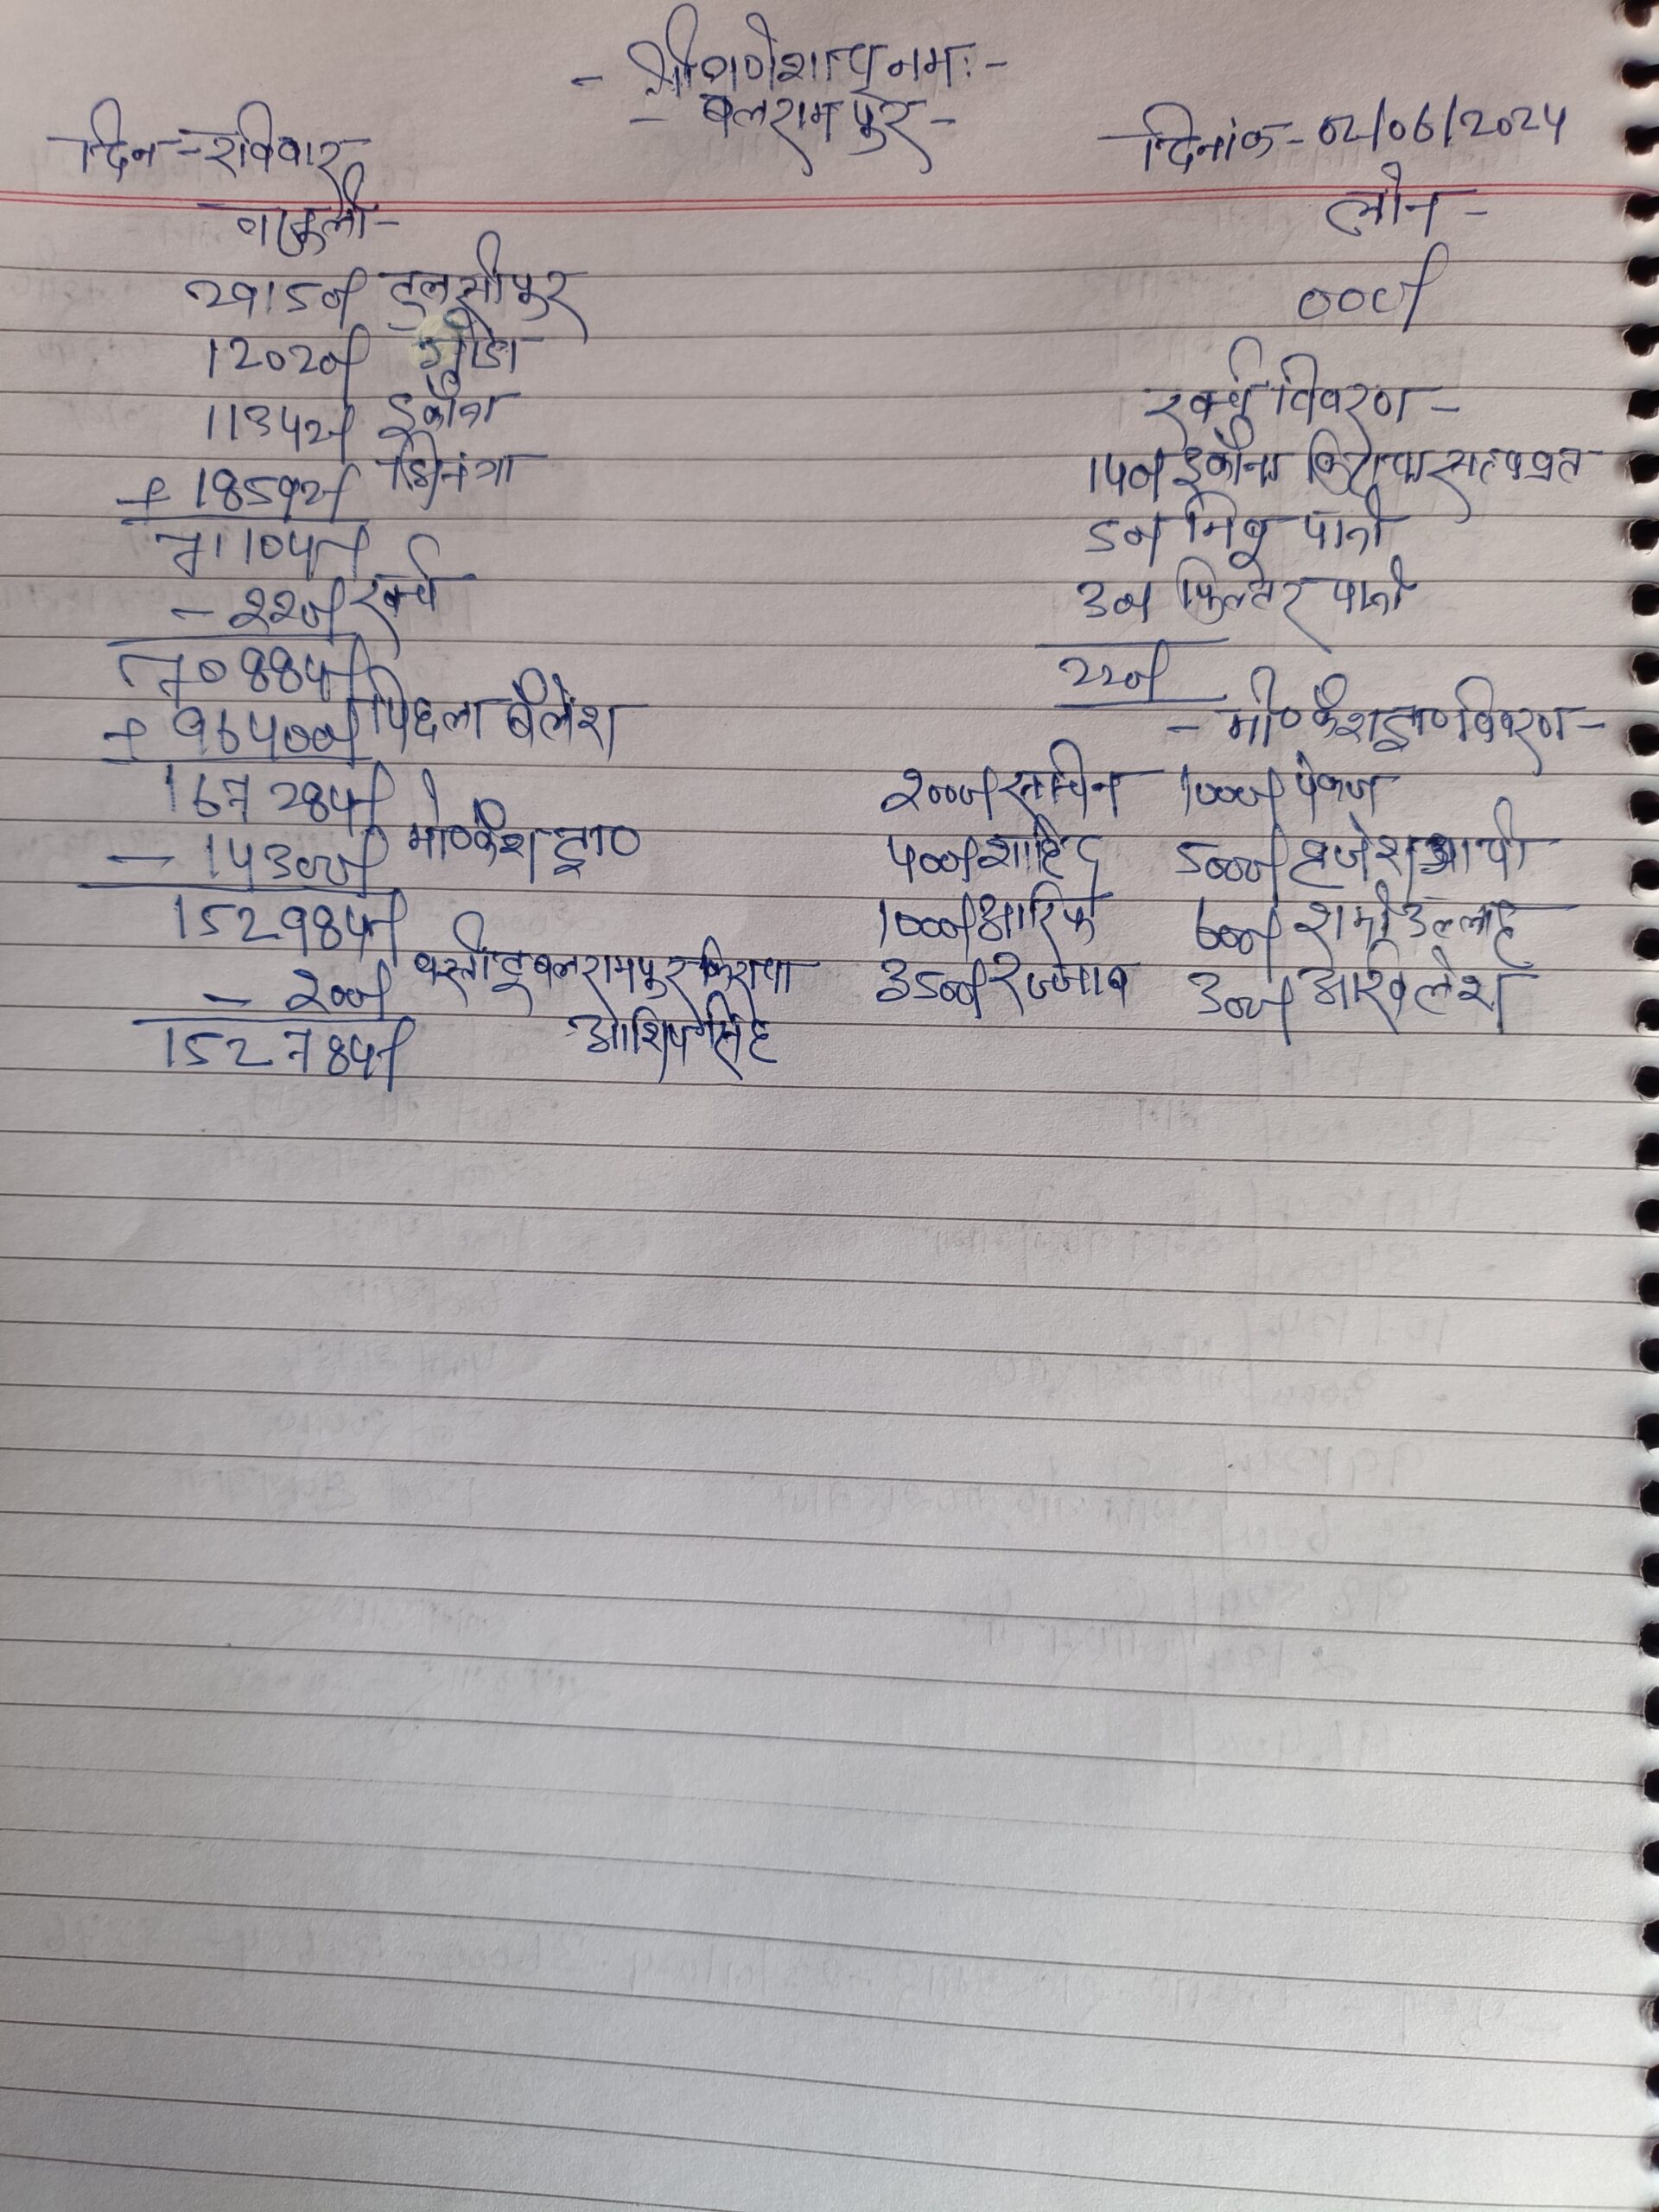 - श्री गणेशाय नमः -
- बलरामपुर -
दिन - रविवार
दिनांक - 02/06/2024
वसूली -
लोन -
29150/ तुलसीपुर
000/
12020/ गोंडा
11342/ इकौना
खर्च विवरण -
+ 18592/ भिनगा
140/ इकौना किराया सत्यव्रत
71104/
50/ निबू पानी
- 220/ खर्च
30/ फिल्टर पानी
70884/
220/
+ 96400/ पिछला बैलेंश
- मो० कैश ट्रा० विवरण -
167284/
2000/ सचिन 1000/ पंकज
- 14300/ मो० कैश ट्रा०
400/ शाहिद 5000/ ब्रजेश
152984/
1000/ आरिफ 600/
- 200/ बलरामपुर किराया
3500/ 300/ अखिलेश
सिंह
152784/